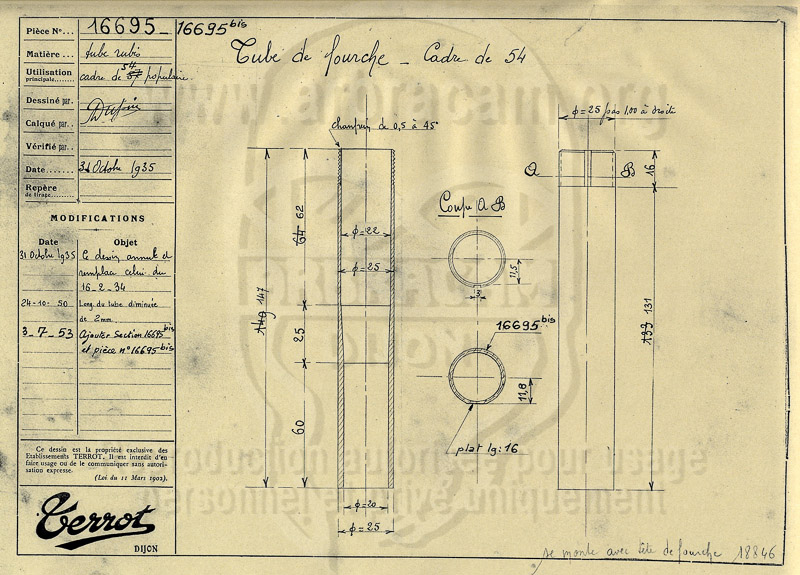 Pièce No... 16695 - 16695 bis
Matière... tube rubis
Utilisation principale... cadre de 54 57 populaire
Dessiné par.
Calqué par..
Vérifié par..
Date... 31 Octobre 1935
Repère de tirage...
MODIFICATIONS
Date Objet
31 Octobre 1935 Ce dessin annule et
remplace celui du
16-2-34
24-10-50 Long. du tube diminuée
de 2mm
3-7-53 Ajouter section 16695 bis
et pièce n° 16695 bis
Ce dessin est la propriété exclusive des
Etablissements TERROT. Il est interdit d'en
faire usage ou de le communiquer sans autori-
sation expresse.
(Loi du 11 Mars 1902).
Terrot
DIJON
Tube de fourche - Cadre de 54
chanfrein de 0,5 à 45°
ϕ=22
ϕ=25
64 62
149 147
25
60
ϕ=20
ϕ=25
Coupe A B
11,5
3
16695 bis
11,8
plat lg: 16
ϕ=25 pas 1,00 à droite
A B
16
133 131
se monte avec tête de fourche 18846
www.arbracam.org
ARBRACAM
DIJON
reproduction autorisée pour usage
personnel et privé uniquement